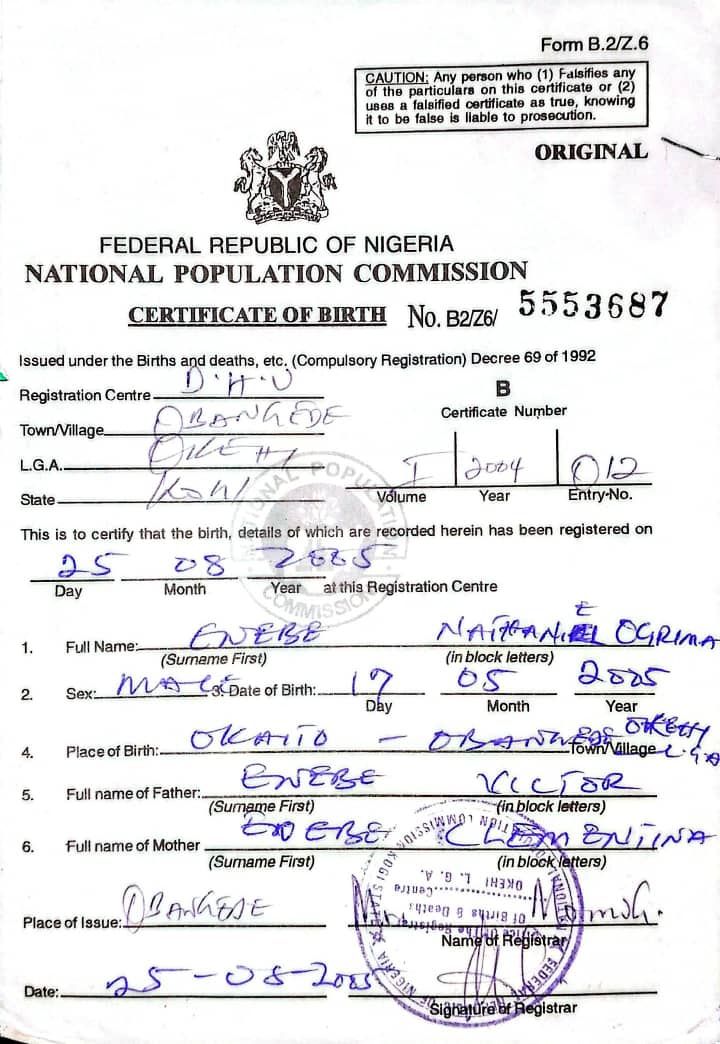 Form B.2/Z.6
CAUTION: Any person who (1) Falsifies any
of the particulars on this certificate or (2)
uses a falsified certificate as true, knowing
it to be false is liable to prosecution.
ORIGINAL
FEDERAL REPUBLIC OF NIGERIA
NATIONAL POPULATION COMMISSION
CERTIFICATE OF BIRTH No. B2/Z6/ 5553687
Issued under the Births and deaths, etc. (Compulsory Registration) Decree 69 of 1992
Registration Centre D.H.U
B
Certificate Number
Town/Village OBANGEDE
L.G.A. OKEHI
State KOGI
I 2004 012
Volume Year Entry-No.
NATIONAL POPULATION COMMISSION
This is to certify that the birth, details of which are recorded herein has been registered on
25 08 2005
Day Month Year at this Registration Centre
1. Full Name: ENEBE NATHANIEL OGRIMA
(Surname First) (in block letters)
2. Sex: MALE 3. Date of Birth: 17 05 2005
Day Month Year
4. Place of Birth: OKAITO - OBANGEDE OKEHI L.GA
Town/Village
5. Full name of Father: ENEBE VICTOR
(Surname First) (in block letters)
6. Full name of Mother ENEBE CLEMENTINA
(Surname First) (in block letters)
OKEHI L. G. A.
Centre
Of Births & Deaths
Office Of The Registrar
Place of Issue: OBANGEDE
Name of Registrar
Date: 25-08-2005
Signature of Registrar